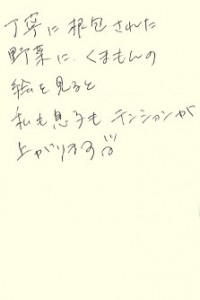 丁寧に梱包された
野菜に、くまもんの
絵を見ると
私も息子も テンションが
上がります